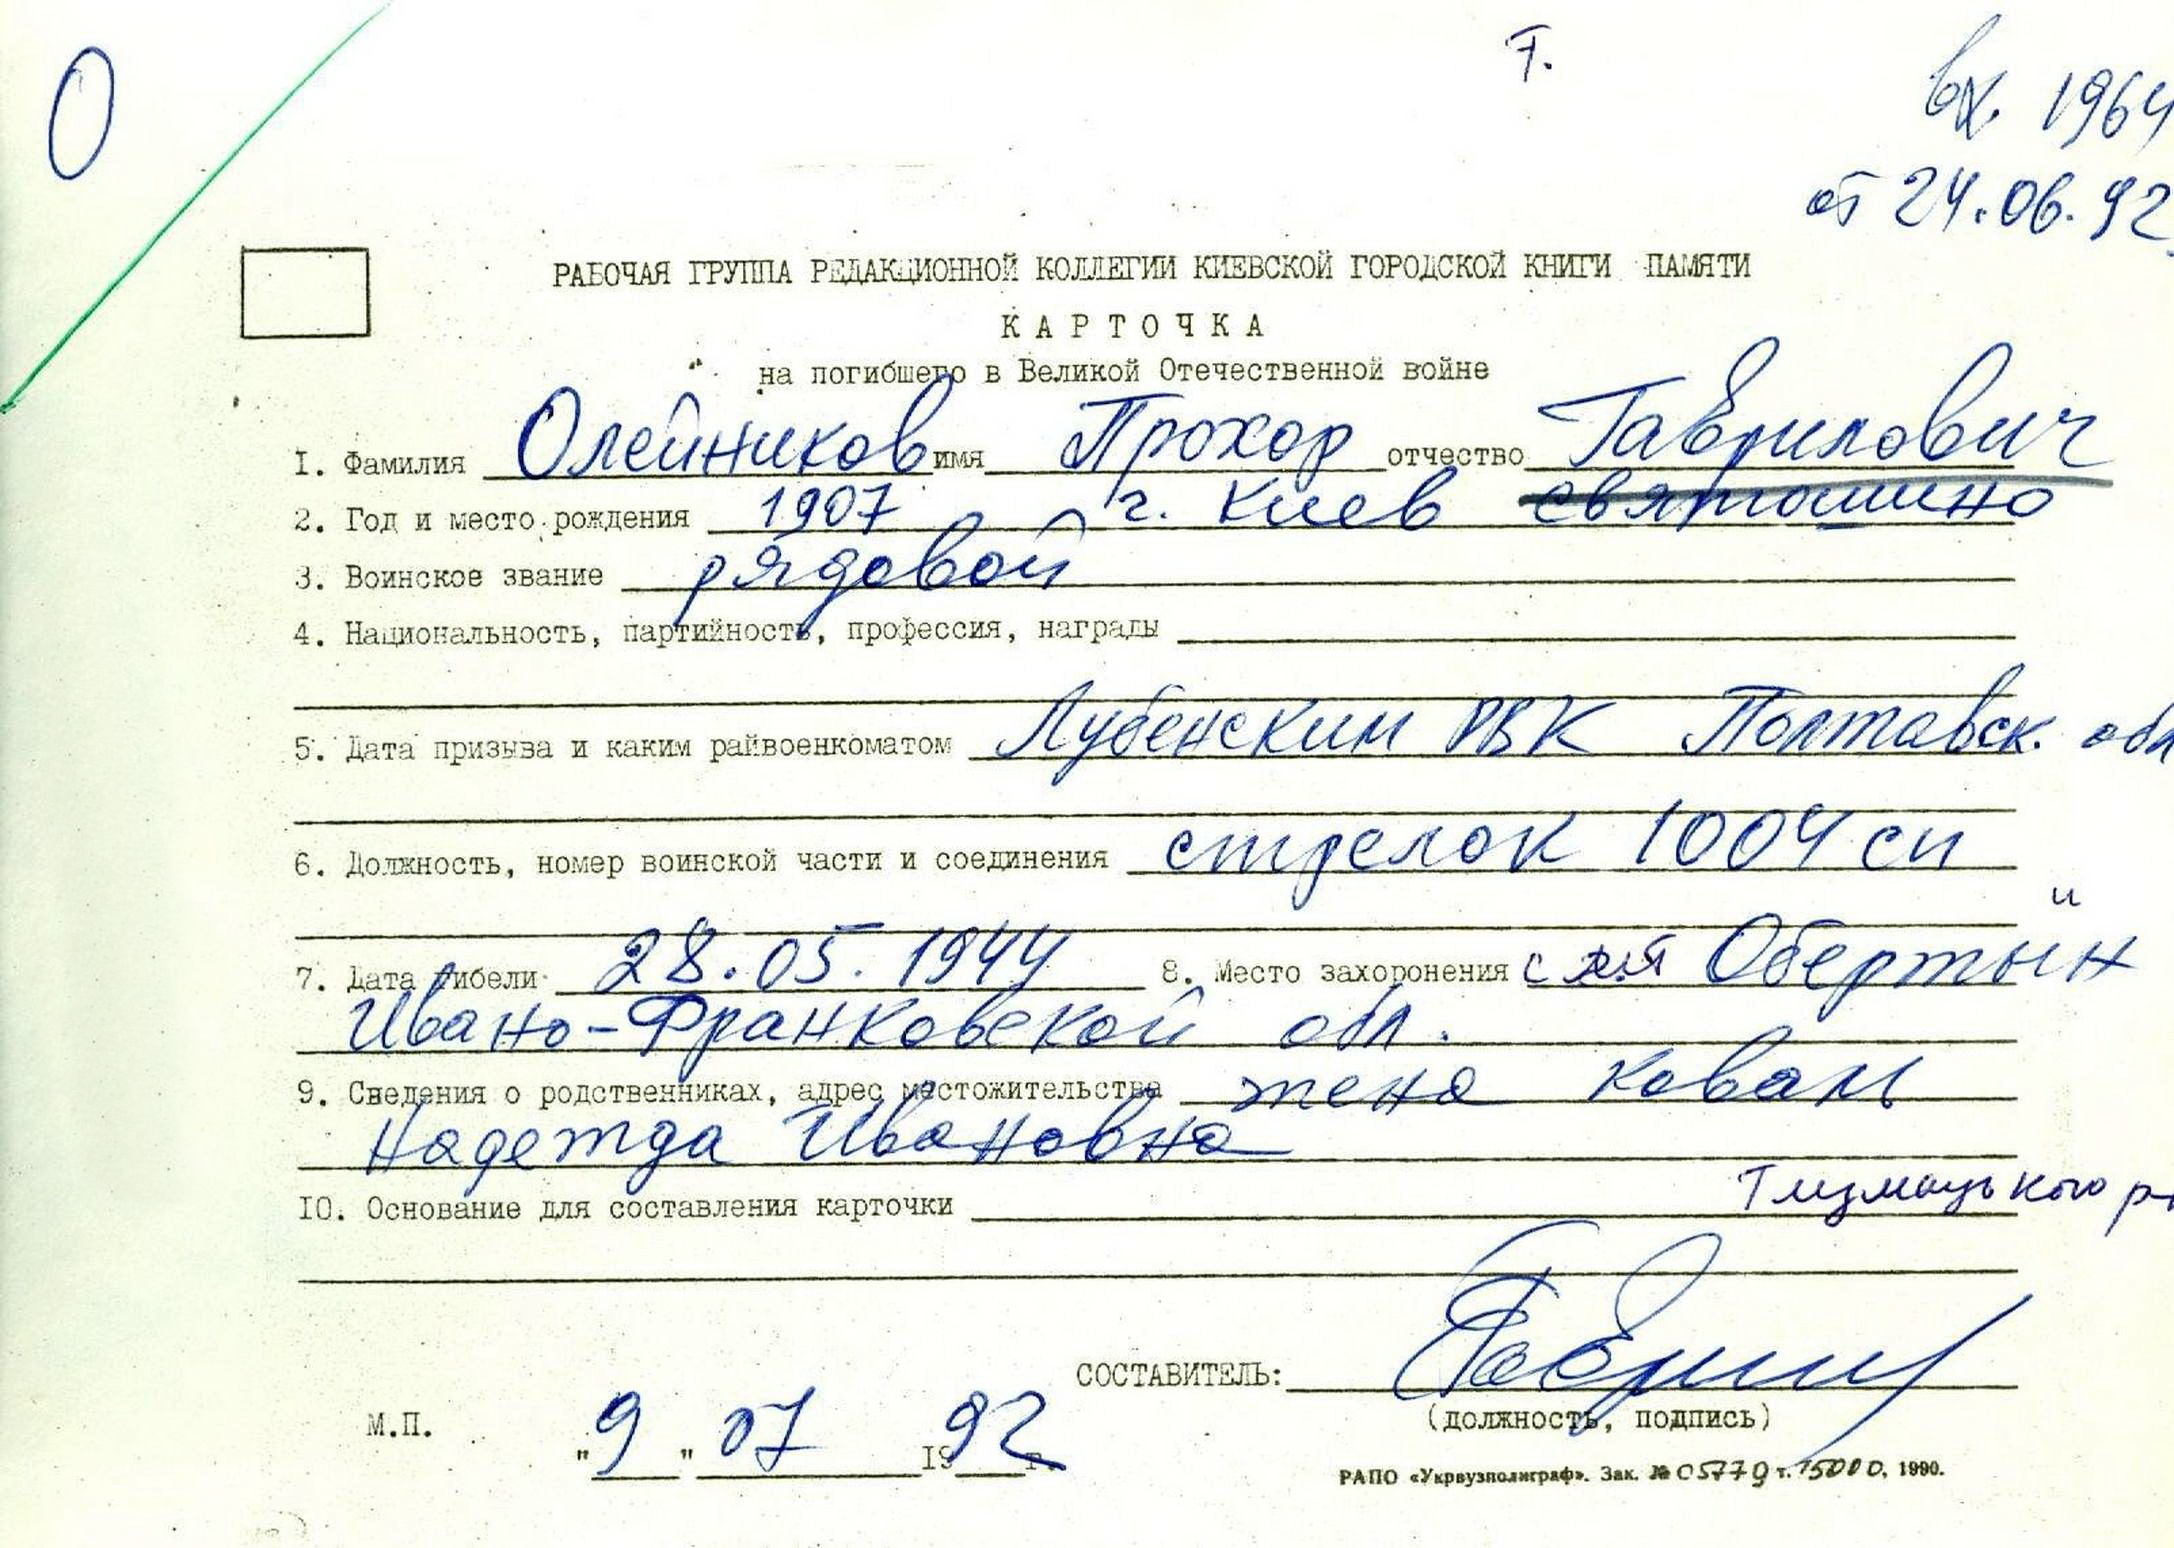 О
Т.
вх. 1964
от 24.06.92
РАБОЧАЯ ГРУППА РЕДАКЦИОННОЙ КОЛЛЕГИИ КИЕВСКОЙ ГОРОДСКОЙ КНИГИ ПАМЯТИ
КАРТОЧКА
на погибшего в Великой Отечественной войне
I. Фамилия Олейников имя Прохор отчество Гаврилович
2. Год и место рождения 1907 г. Киев Святошино
3. Воинское звание рядовой
4. Национальность, партийность, профессия, награды
5. Дата призыва и каким райвоенкоматом Лубенским РВК Полтавск. обл
6. Должность, номер воинской части и соединения стрелок 1004 сп
и
7. Дата гибели 28.05.1944 8. Место захоронения с Обертын
Ивано-Франковской обл.
9. Сведения о родственниках, адрес местожительства жена Коваль
Надежда Ивановна
Тлумацького р-
10. Основание для составления карточки
СОСТАВИТЕЛЬ:
(должность, подпись)
М.П.
"9" 07 1992 г.
РАПО «Укрвузполиграф». Зак. № 05779 т. 15000, 1990.